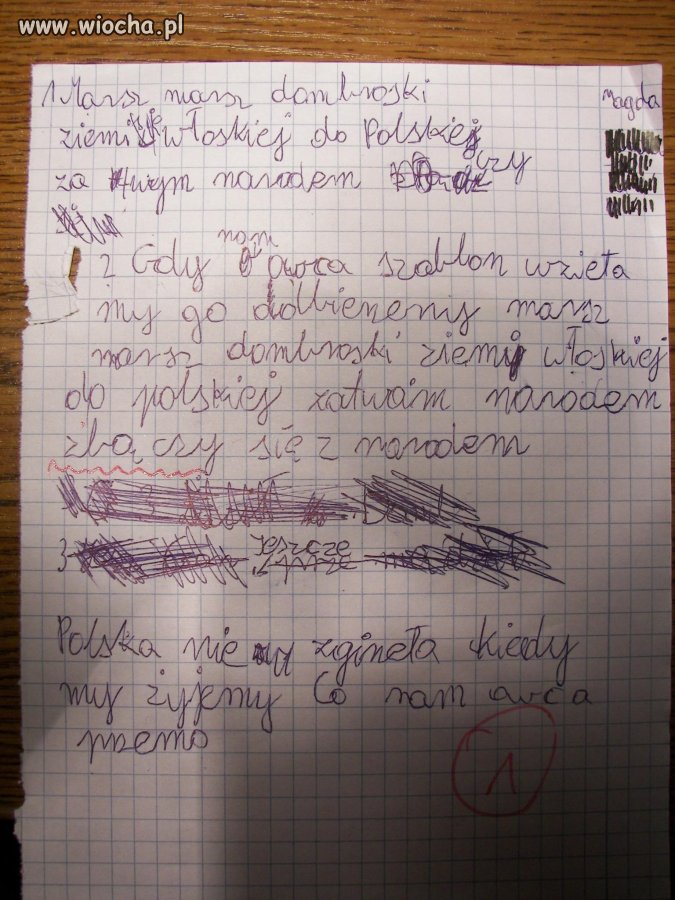 www.wiocha.pl
1 Marsz marsz dombroski
Magda
ziemi włoskiej do Polskiej
za twym narodem czy
nam
2 Gdy owca szablon wzieła
my go odbierzemy marsz
marsz dombroski ziemi włoskiej
do polskiej zatwaim narodem
zbą czy się z narodem
3 Jeszcze
Polska nie zgineła kiedy
my żyjemy Co nam avca
przemo
1